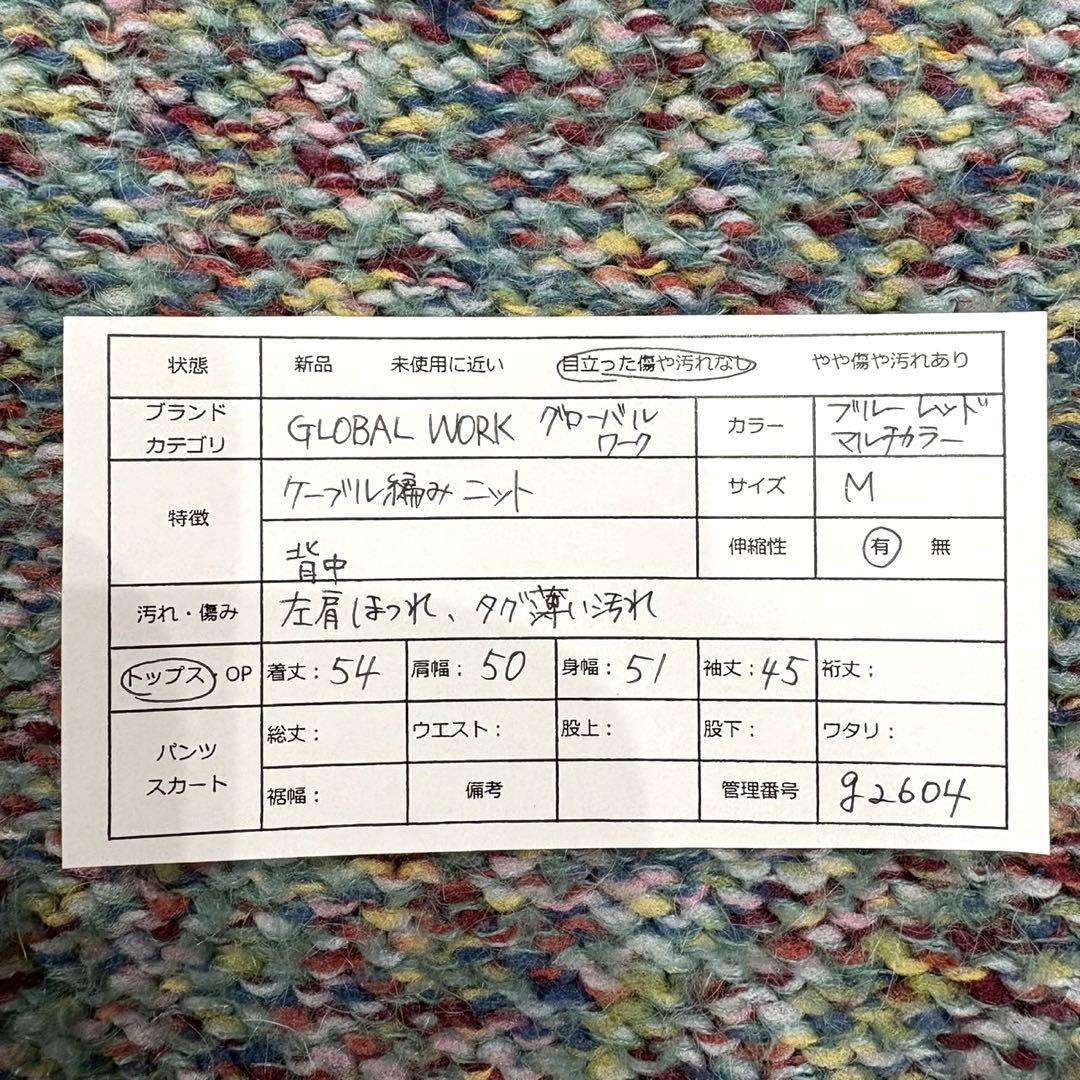 状態 新品 未使用に近い 目立った傷や汚れなし やや傷や汚れあり
ブランド カテゴリ GLOBAL WORK グローバル ワーク カラー ブルー レッド マルチカラー
特徴 ケーブル編み ニット サイズ M
伸縮性 有 無
背中
汚れ・傷み 左肩ほつれ、タグ薄い汚れ
トップス・OP 着丈：54 肩幅：50 身幅：51 袖丈：45 裄丈：
パンツ スカート 総丈： ウエスト： 股上： 股下： ワタリ：
裾幅： 備考 管理番号 g2604